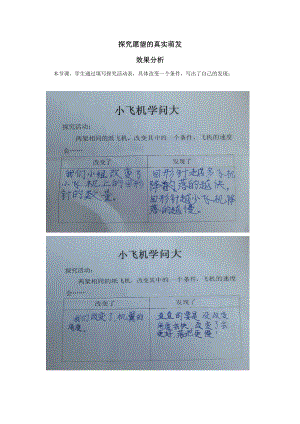 探究愿望的真实萌发
效果分析
本节课，学生通过填写探究活动表，具体改变一个条件，写出了自己的发现：
小飞机学问大
探究活动：
两架相同的纸飞机，改变其中的一个条件，飞机的速度
会……
改变了
发现了
我们小组改变了
小飞机上的回形
针的数量。
回形针越多飞机
降落的越快，
回形针越小飞机降
落的越慢。
小飞机学问大
探究活动：
两架相同的纸飞机，改变其中的一个条件，飞机的速度
会……
改变了
发现了
我们改变了机翼的
角度。